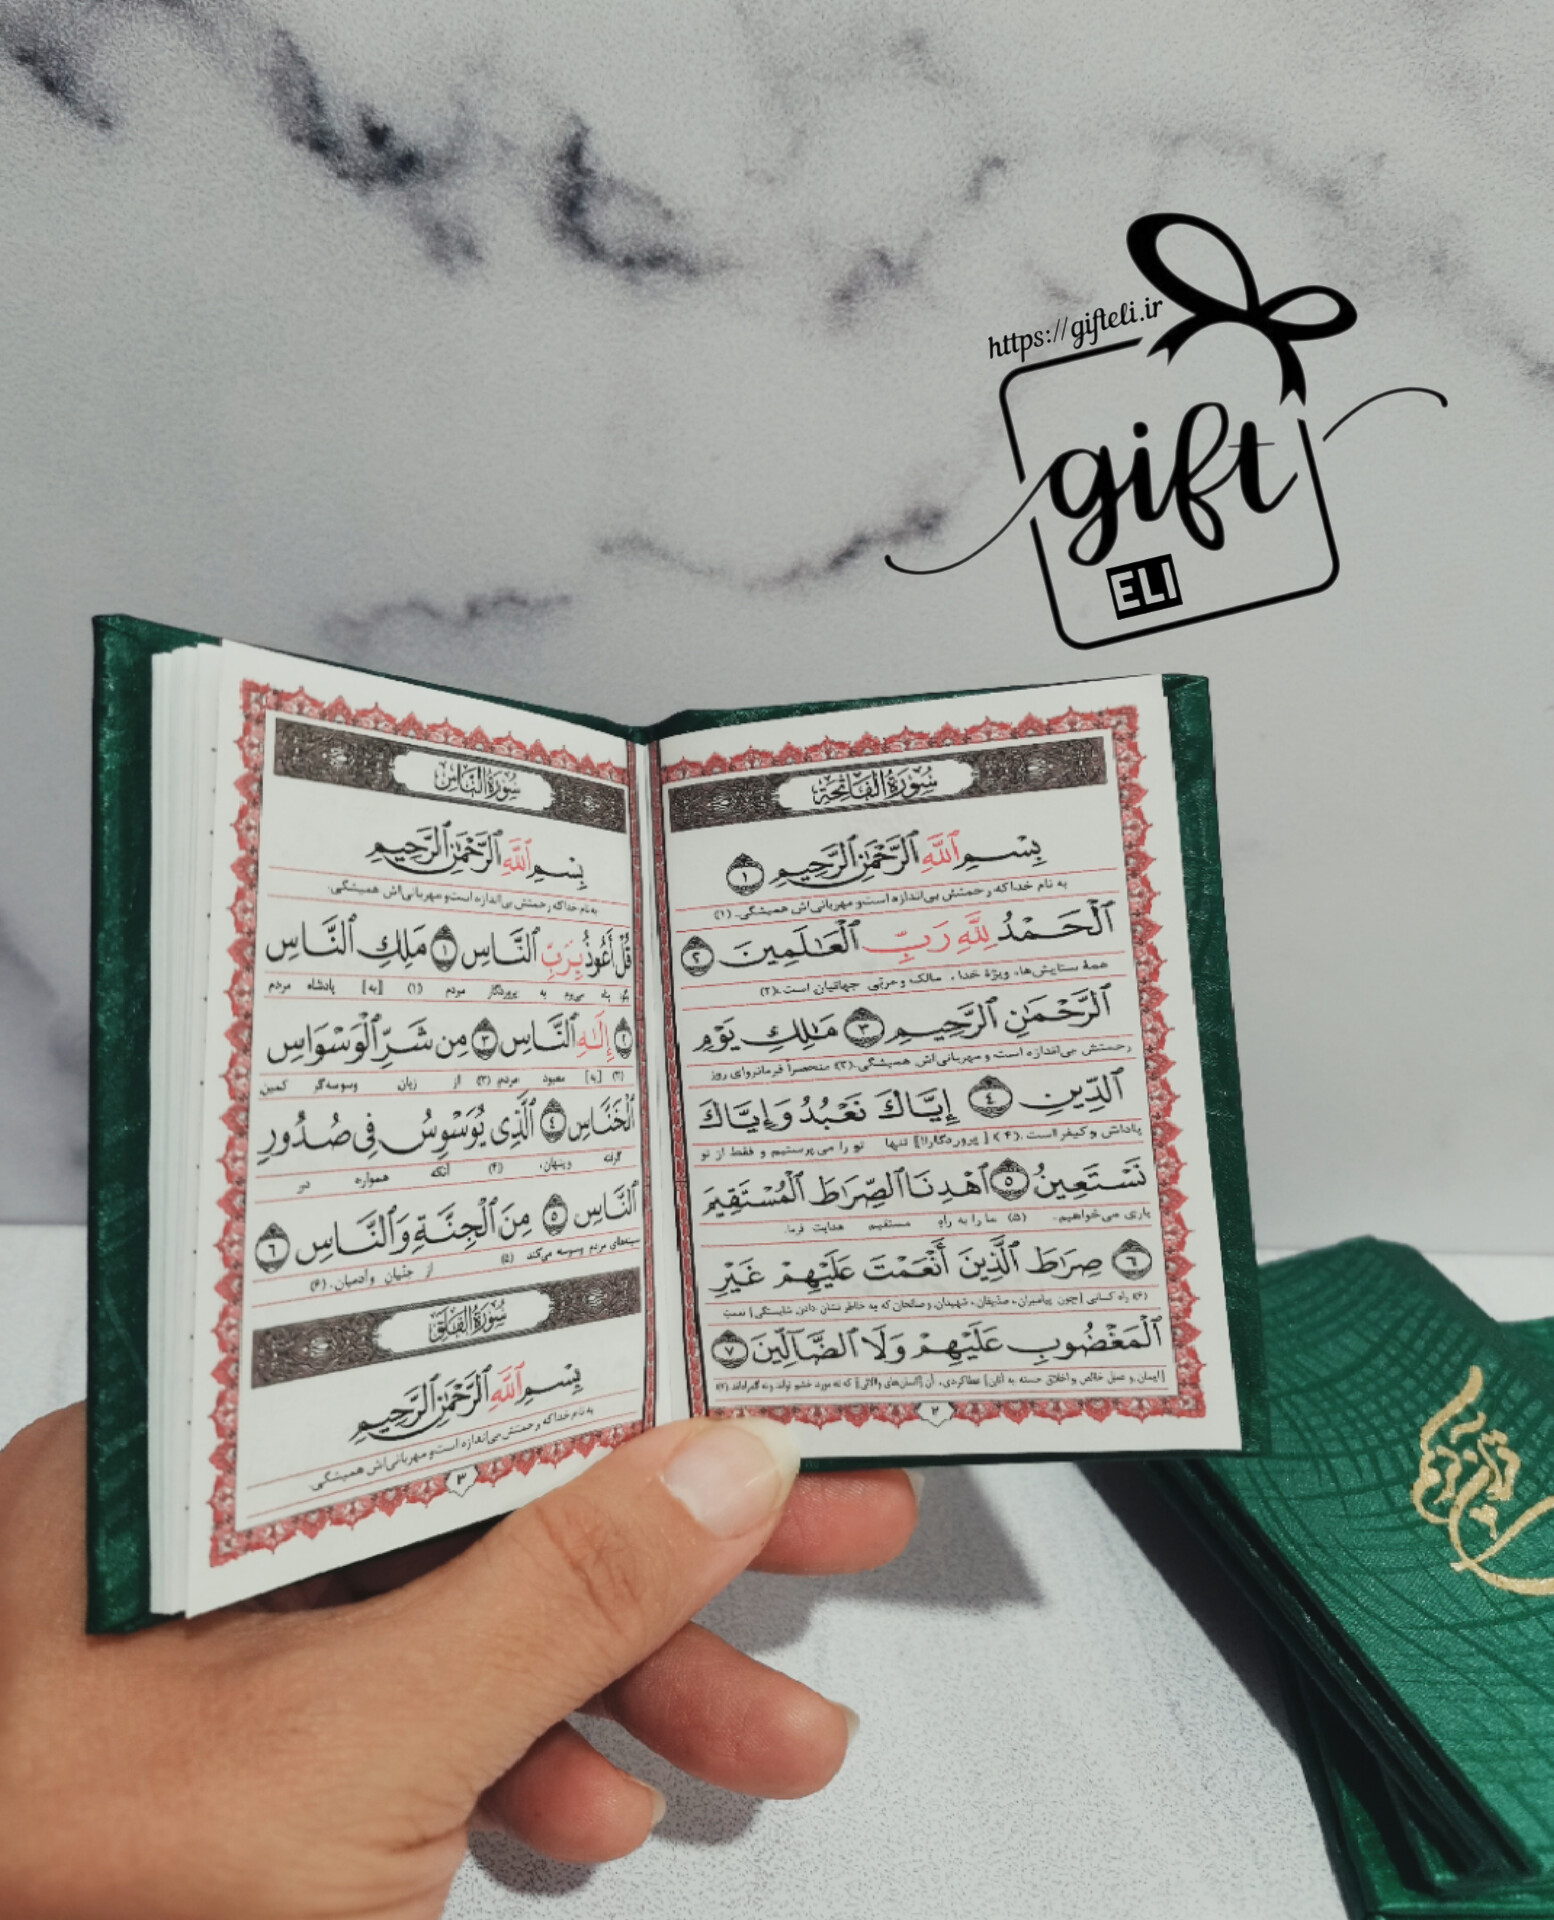 https://gifteli.ir
gift
ELI
سُورَةُ الْفَاتِحَة
بِسْمِ ٱللَّهِ ٱلرَّحْمَٰنِ ٱلرَّحِيمِ ١
به نام خدا که رحمتش بی‌اندازه است و مهربانی‌اش همیشگی. (۱)
ٱلْحَمْدُ لِلَّهِ رَبِّ ٱلْعَٰلَمِينَ ٢
همهٔ ستایش‌ها، ویژهٔ خدا، مالک و مربّی جهانیان است. (۲)
ٱلرَّحْمَٰنِ ٱلرَّحِيمِ ٣ مَٰلِكِ يَوْمِ
رحمتش بی‌اندازه است و مهربانی‌اش همیشگی. (۳) منحصراً فرمانروای روز
ٱلدِّينِ ٤ إِيَّاكَ نَعْبُدُ وَإِيَّاكَ
پاداش و کیفر است. (۴) [پروردگارا!] تنها تو را می‌پرستیم و فقط از تو
نَسْتَعِينُ ٥ ٱهْدِنَا ٱلصِّرَاطَ ٱلْمُسْتَقِيمَ
یاری می‌خواهیم. (۵) ما را به راهِ مستقیم هدایت فرما.
٦ صِرَاطَ ٱلَّذِينَ أَنْعَمْتَ عَلَيْهِمْ غَيْرِ
(۶) راه کسانی [چون پیامبران، صدّیقان، شهیدان و صالحان که به خاطر نشان دادن شایستگی] نعمتِ
ٱلْمَغْضُوبِ عَلَيْهِمْ وَلَا ٱلضَّآلِّينَ ٧
[ایمان و عمل خالص و اخلاق حسنه به آنان] عطا کردی، آن که نه مورد خشم تواند و نه گمراه‌اند. (۷)
٢
سُورَةُ النَّاس
بِسْمِ ٱللَّهِ ٱلرَّحْمَٰنِ ٱلرَّحِيمِ
به نام خدا که رحمتش بی‌اندازه است و مهربانی‌اش همیشگی.
قُلْ أَعُوذُ بِرَبِّ ٱلنَّاسِ ١ مَلِكِ ٱلنَّاسِ
بگو: پناه می‌برم به پروردگار مردم (۱) [به] پادشاه مردم
٢ إِلَٰهِ ٱلنَّاسِ ٣ مِن شَرِّ ٱلْوَسْوَاسِ
(۲) [به] معبود مردم، (۳) از زیان وسوسه‌گر کمین
ٱلْخَنَّاسِ ٤ ٱلَّذِى يُوَسْوِسُ فِى صُدُورِ
گرفته و پنهان، (۴) آنکه همواره در
ٱلنَّاسِ ٥ مِنَ ٱلْجِنَّةِ وَٱلنَّاسِ ٦
سینه‌های مردم وسوسه می‌کند (۵) از جنّیان و آدمیان. (۶)
سُورَةُ الْفَلَق
بِسْمِ ٱللَّهِ ٱلرَّحْمَٰنِ ٱلرَّحِيمِ
به نام خدا که رحمتش بی‌اندازه است و مهربانی‌اش همیشگی.
٣